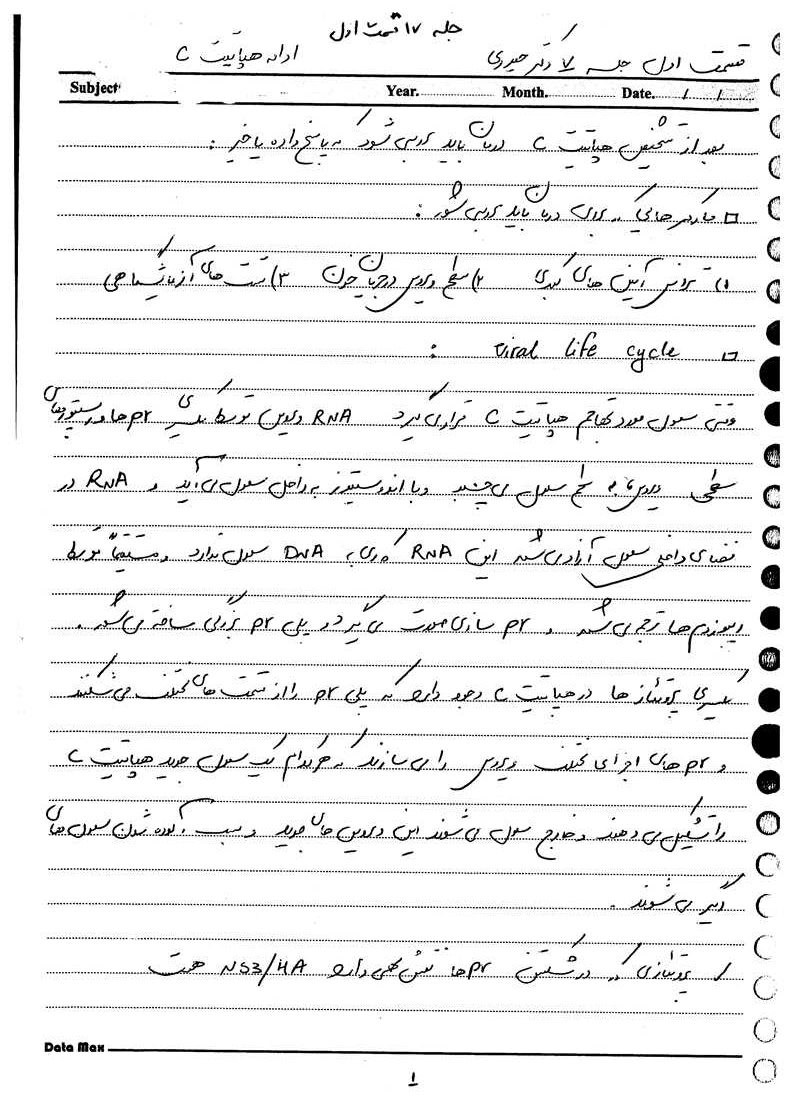 جلسه ۱۷ قسمت اول
قسمت اول جلسه ۷ دکتر حیدری
ادامه هپاتیت C
Subject: Year. Month. Date. / /
بعد از تشخیص هپاتیت C درمان باید بررسی شود که پاسخ داده یا خیر :
□ مارکر هایی که برای درمان باید بررسی شود :
۱) ترانس آمین های کبدی ۲) سطح ویروس در جریان خون ۳) تست های آزمایشگاهی
□ viral life cycle :
وقتی سلول مورد تهاجم هپاتیت C قرار می گیرد RNA ویروس توسط یکسری pr ها و رسپتورهای
سطحی ویروس ها به سطح سلول می چسبد و با اندوسیتوز به داخل سلول می آید و RNA در
فضای داخل سلول آزاد می شود این RNA کاری به DNA سلول ندارد و مستقیماً توسط
ریبوزوم ها ترجمه می شود و pr سازی صورت می گیرد و پلی pr بزرگی ساخته می شود .
یکسری پروتئاز ها در هپاتیت C وجود دارد که پلی pr را از قسمت های مختلف می شکنند
و pr های اجزای مختلف ویروس را می سازند که هرکدام یک سلول جدید هپاتیت C
را تشکیل می دهند و خارج سلول می شوند این ویروس های جدید و سبب آلوده شدن سلول های
دیگر می شوند .
✓ پروتئازی که در شکستن pr ها نقش مهمی دارد NS3/4A هست
Data Max
۱